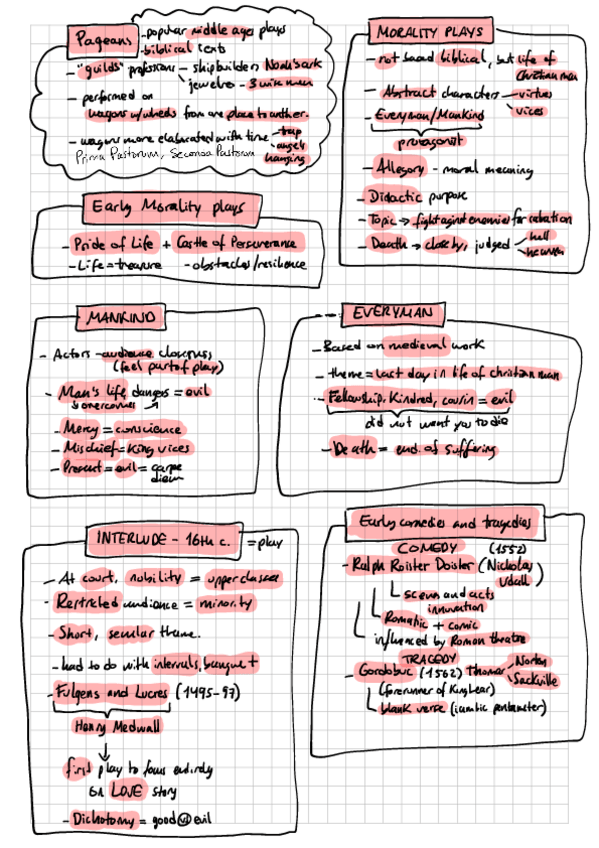 Pageans
-popular middle ages plays
-biblical texts
-"guilds" professions - shipbuilders Noah's ark
jewelres - 3 wise men
- performed on
wagons w/wheels from one place to another.
- wagons more elaborated with time
trap
angels
hanging
Prima Pastorum, Secunda Pastorum
Early Morality plays
- Pride of Life + Castle of Perseverance
- Life = treasure - obstacles/resilience
MORALITY PLAYS
- not based biblical, but life of
Christian man
- Abstract characters
virtues
vices
- Everyman/Mankind
protagonist
- Allegory - moral meaning
- Didactic purpose
- Topic → fight against enemies for
- Death → close by, judged
hell
heaven
MANKIND
- Actors - audience closeness
(feel part of play)
- Man's life, dangers = evil
overcomes
- Mercy = conscience
- Mischief = King vices
- Present = evil = carpe
diem
EVERYMAN
- Based on medieval work
- theme = last day in life of christian man
- Fellowship, Kindred, cousin = evil
did not want you to die
- Death = end of suffering
INTERLUDE - 16th c. = play
- At court, nobility = upper classes
- Restricted audience = minority
- Short, secular theme.
- had to do with intervals, banquet
- Fulgens and Lucres (1495-97)
Henry Medwall
first play to focus entirely
on LOVE story
- Dichotomy = good vs evil
Early comedies and tragedies
COMEDY (1552)
- Ralph Roister Doister (Nicholas
Udall)
scenes and acts
innovation
Romantic + comic
influenced by Roman theatre
TRAGEDY
- Gordobuc (1562) Thomas
Norton
Sackville
(forerunner of King Lear)
blank verse (iambic pentameter)